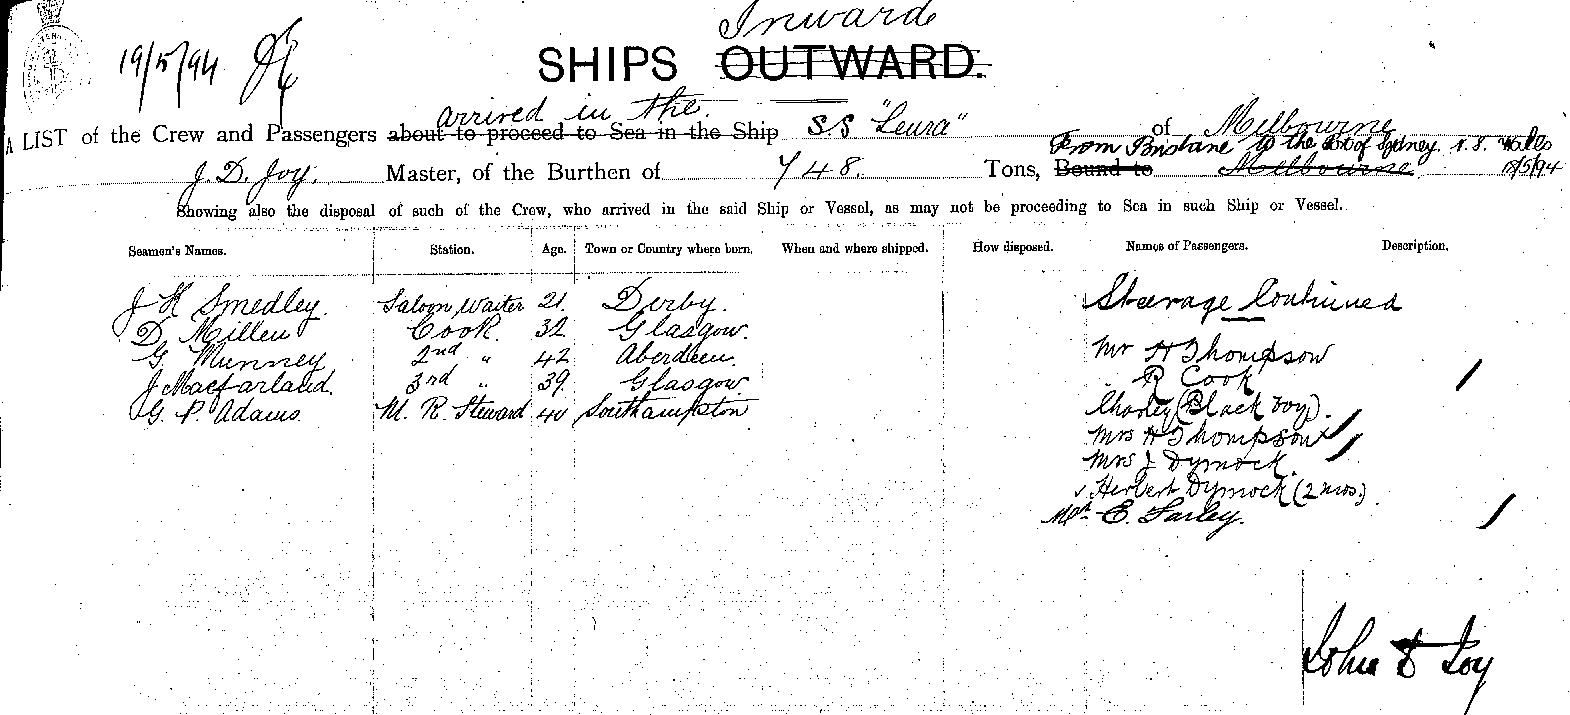 Inward
19/5/94
SHIPS OUTWARD.
arrived in the
A LIST of the Crew and Passengers about to proceed to Sea in the Ship S.S "Leura" of Melbourne
From Brisbane to the Port of Sydney N. S. Wales
J. D. Joy. Master, of the Burthen of 748. Tons, Bound to Melbourne
Showing also the disposal of such of the Crew, who arrived in the said Ship or Vessel, as may not be proceeding to Sea in such Ship or Vessel.
Seamen's Names. Station. Age. Town or Country where born. When and where shipped. How disposed. Names of Passengers. Description.
J H Smedley. Saloon Waiter 21. Derby. Steerage Continued
D. Millen Cook. 32 Glasgow.
G. Munney 2nd " 42 Aberdeen. Mr H Thompson
J Macfarland. 3rd " 39. Glasgow R Cook
G. P. Adams. M. R. Steward 40 Southampton Charley (Black Boy).
Mrs H Thompson
Mrs J Dymock.
Herbert Dymock (2 mos.)
E. Sarley.
John D Joy